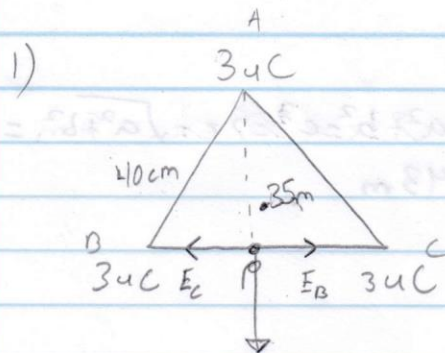 A
1) 3uC
40cm
.35m
B C
3uC E_C P E_B 3uC